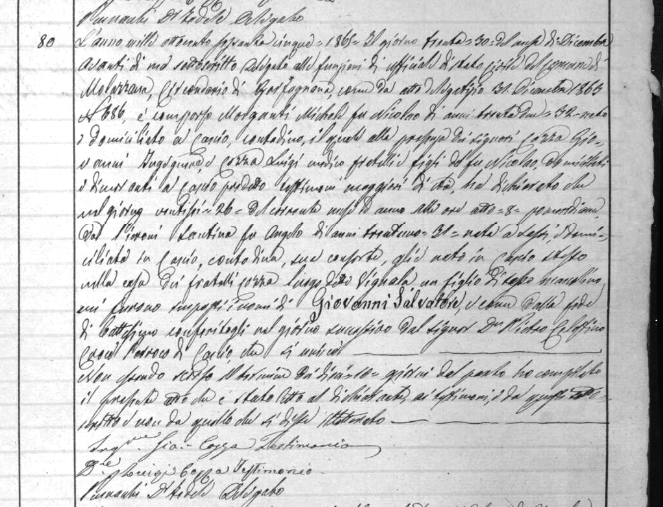 Delegato
80 L'anno mille ottocento sessanta cinque = 1865 = Il giorno trenta = 30 = del mese di Dicembre
Avanti di me sottoscritto delegato alle funzioni di uffiziale di stato civile del Comune di
Molazzana, Circondario di Garfagnana, come da atto 31 Dicembre 1865
N° 386, è comparso Morganti Michele fu Nicolao di anni trenta due = 32 = nato
e domiciliato a Cascio, contadino, il quale alla presenza dei Signori Cozza Gio-
vanni Ingegnere, e Cozza Luigi medico fratelli e figli del fu Nicolao, domiciliati
e dimoranti a Cascio predetto testimoni maggiori di età, ha dichiarato che
nel giorno ventisei = 26 = del corrente mese ed anno alle ore otto = 8 = pomeridiane
dal Santina fu Angelo di anni trentuno = 31 = nata a domi-
ciliata in Cascio, contadina, sua consorte, gli è nato in Cascio stesso
nella casa dei fratelli Cozza luogo detto Vignala un figlio di sesso mascolino
cui furono imposti i nomi di Giovanni Salvatore, e come dalla fede
di battesimo conferitogli nel giorno successivo dal Signor Don Pietro Celestino
Parroco di Cascio, che si unisce
Non essendo scorso il termine dei dieci = 10 = giorni dal parto ho compilato
il presente atto che è stato letto al dichiarante, ai testimoni, e da questi sotto-
scritto e non da quello che si disse illetterato
Ing. Gio. Cozza Testimonio
Luigi Cozza Testimonio
Delegato